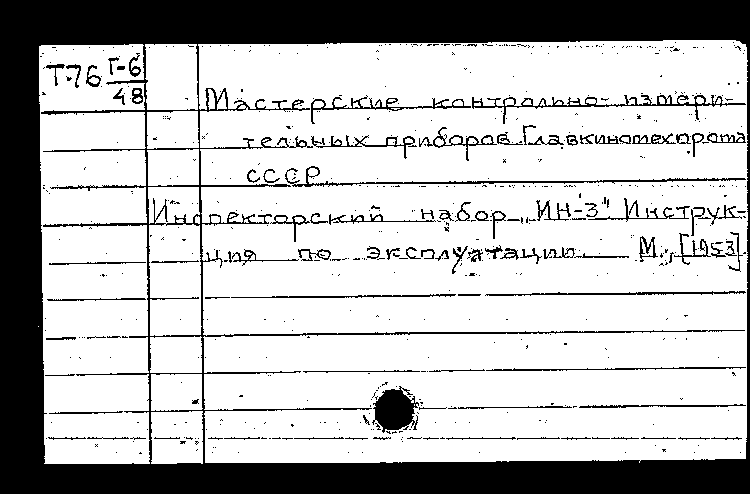 Т-76 Г-6
48
Мастерские контрольно-измери-
тельных приборов Главкинотехпрома
СССР.
Инспекторский набор „ИН-3". Инструк-
ция по эксплуатации. М., [1953].